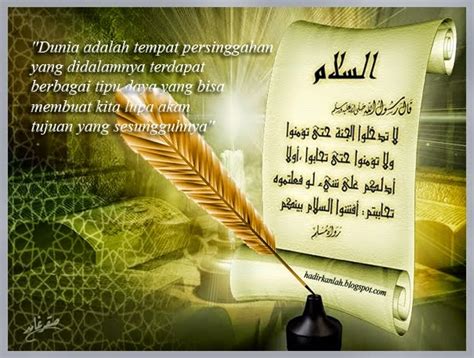 "Dunia adalah tempat persinggahan
yang didalamnya terdapat
berbagai tipu daya yang bisa
membuat kita lupa akan
tujuan yang sesungguhnya"
السلام
قال رسول الله صلى الله عليه وسلم
لا تدخلوا الجنة حتى تؤمنوا
ولا تؤمنوا حتى تحابوا ,أولا
أدلكم على شيء لو فعلتموه
تحاببتم : أفشوا السلام بينكم
رواه مسلم
hadirkanlah.blogspot.com